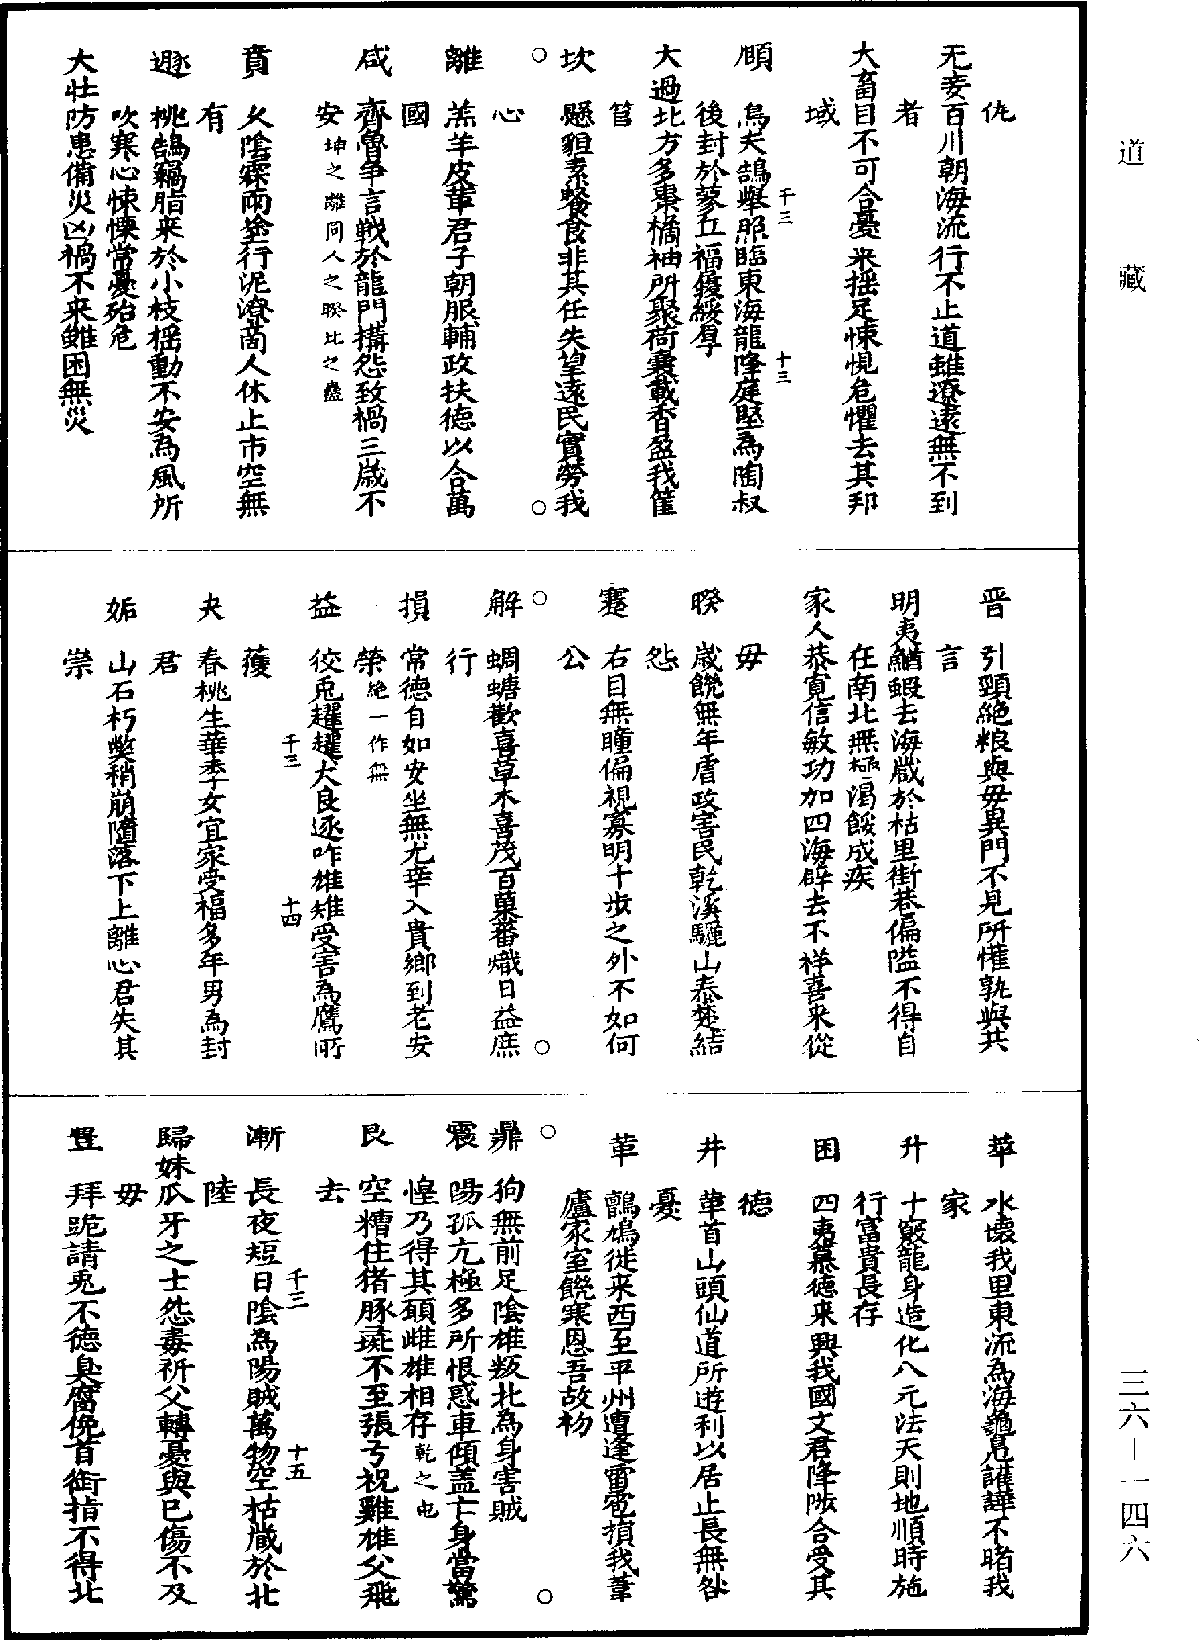 道藏
三六—一四六
仇
无妄百川朝海流行不止道雖遼遠無不到
者
大畜目不可合憂來搖足悚惧危懼去其邦
域
頤　烏夫鵲舉照臨東海龍降庭堅為陶叔
後封於蓼丘福鍰綏厚
千三　十三
大過北方多棗橘柚所聚荷囊載香盈我筐
筥
坎　懸貆素餐食非其任失望遠民實勞我
心
○　○
離　羔羊皮革君子朝服輔政扶德以合萬
國
咸　齊魯爭言戰於龍門搆怨致禍三歲不
安坤之離同人之睽比之盡
賁　久陰霖雨塗行泥潦商人休止市空無
有
遯　桃鵲竊脂來於小枝搖動不安為風所
吹寒心悚慄常憂殆危
大壯防患備災凶禍不來雖困無災
晋　引頸絕粮與毋異門不見所懽孰與共
言
明夷鰌鰕去海藏於枯里街巷偏隘不得自
在南北無極渴餒成疾
家人恭寬信敏功加四海辟去不祥喜來從
毋
睽　歲饑無年虐政害民乾溪驪山泰楚結
怨
蹇　右目無瞳偏視寡明十步之外不如何
公
○　○
解　蜩螗歡喜草木喜茂百菓蕃熾日益庶
行
損　常德自如安坐無尤幸入貴鄉到老安
榮絕一作無
益　佼兎趯趯犬良逐咋雄雉受害為鷹所
獲
千三　十四
夬　春桃生華季女宜家受福多年男為封
君
姤　山石朽弊稍崩墮落下上離心君失其
崇
萃　水壞我里東流為海龜鳧讙譁不睹我
家
升　十竅龍身造化八元法天則地順時施
行富貴長存
困　四夷慕德來興我國文君降陟合受其
德
井　華首山頭仙道所遊利以居止長無咎
憂
革　鸇鳩徙來西至平州遭逢雷雹損我葦
廬家室饑寒恩吾故初
○　○
鼎　狗無前足陰雄叛北為身害賊
震　陽孤亢極多所恨惑車傾盖亡身當驚
惶乃得其頭雌雄相存乾之屯
艮　空槽住猪豚彘不至張弓祝雞雄父飛
去
漸　長夜短日陰為陽賊萬物空枯藏於北
陸
千三　十五
歸妹瓜牙之士怨毒祈父轉憂與已傷不及
毋
豐　拜跪請兎不德臭腐俛首銜指不得北